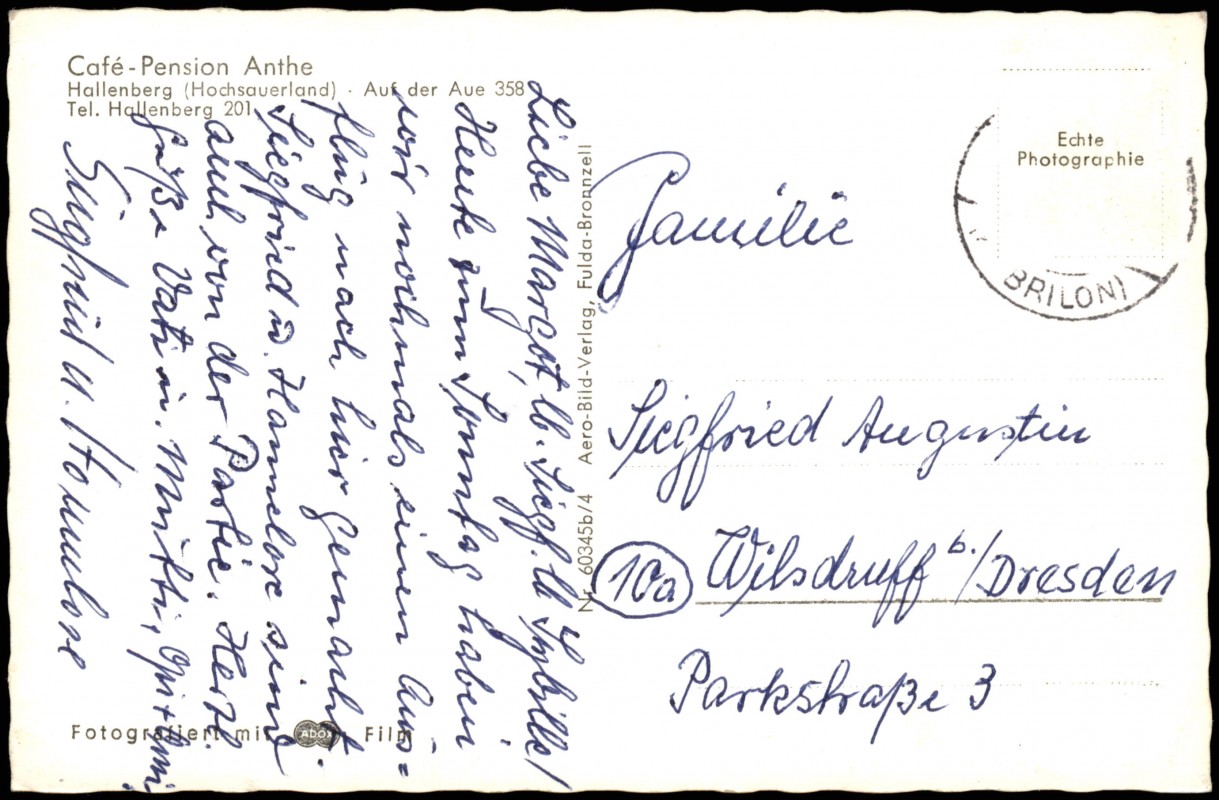 Café-Pension Anthe
Hallenberg (Hochsauerland) · Auf der Aue 358
Tel. Hallenberg 201
Liebe Margot, lb. Siegf. lb Sybille!
Heute zum Sonntag haben
wir nochmals einen Aus=
flug nach hier gemacht.
Siegfried u. Hannelore sind
auch von der Partie. Herzl.
Grüße Vati u. Mutti,
Siegfried u. Hannelore
Fotografiert mit ADOX Film
Nr. 60345b/4 Aero-Bild-Verlag, Fulda-Bronnzell
Echte
Photographie
BRILON
Familie
Siegfried Augustin
10a Wilsdruff b./Dresden
Parkstraße 3